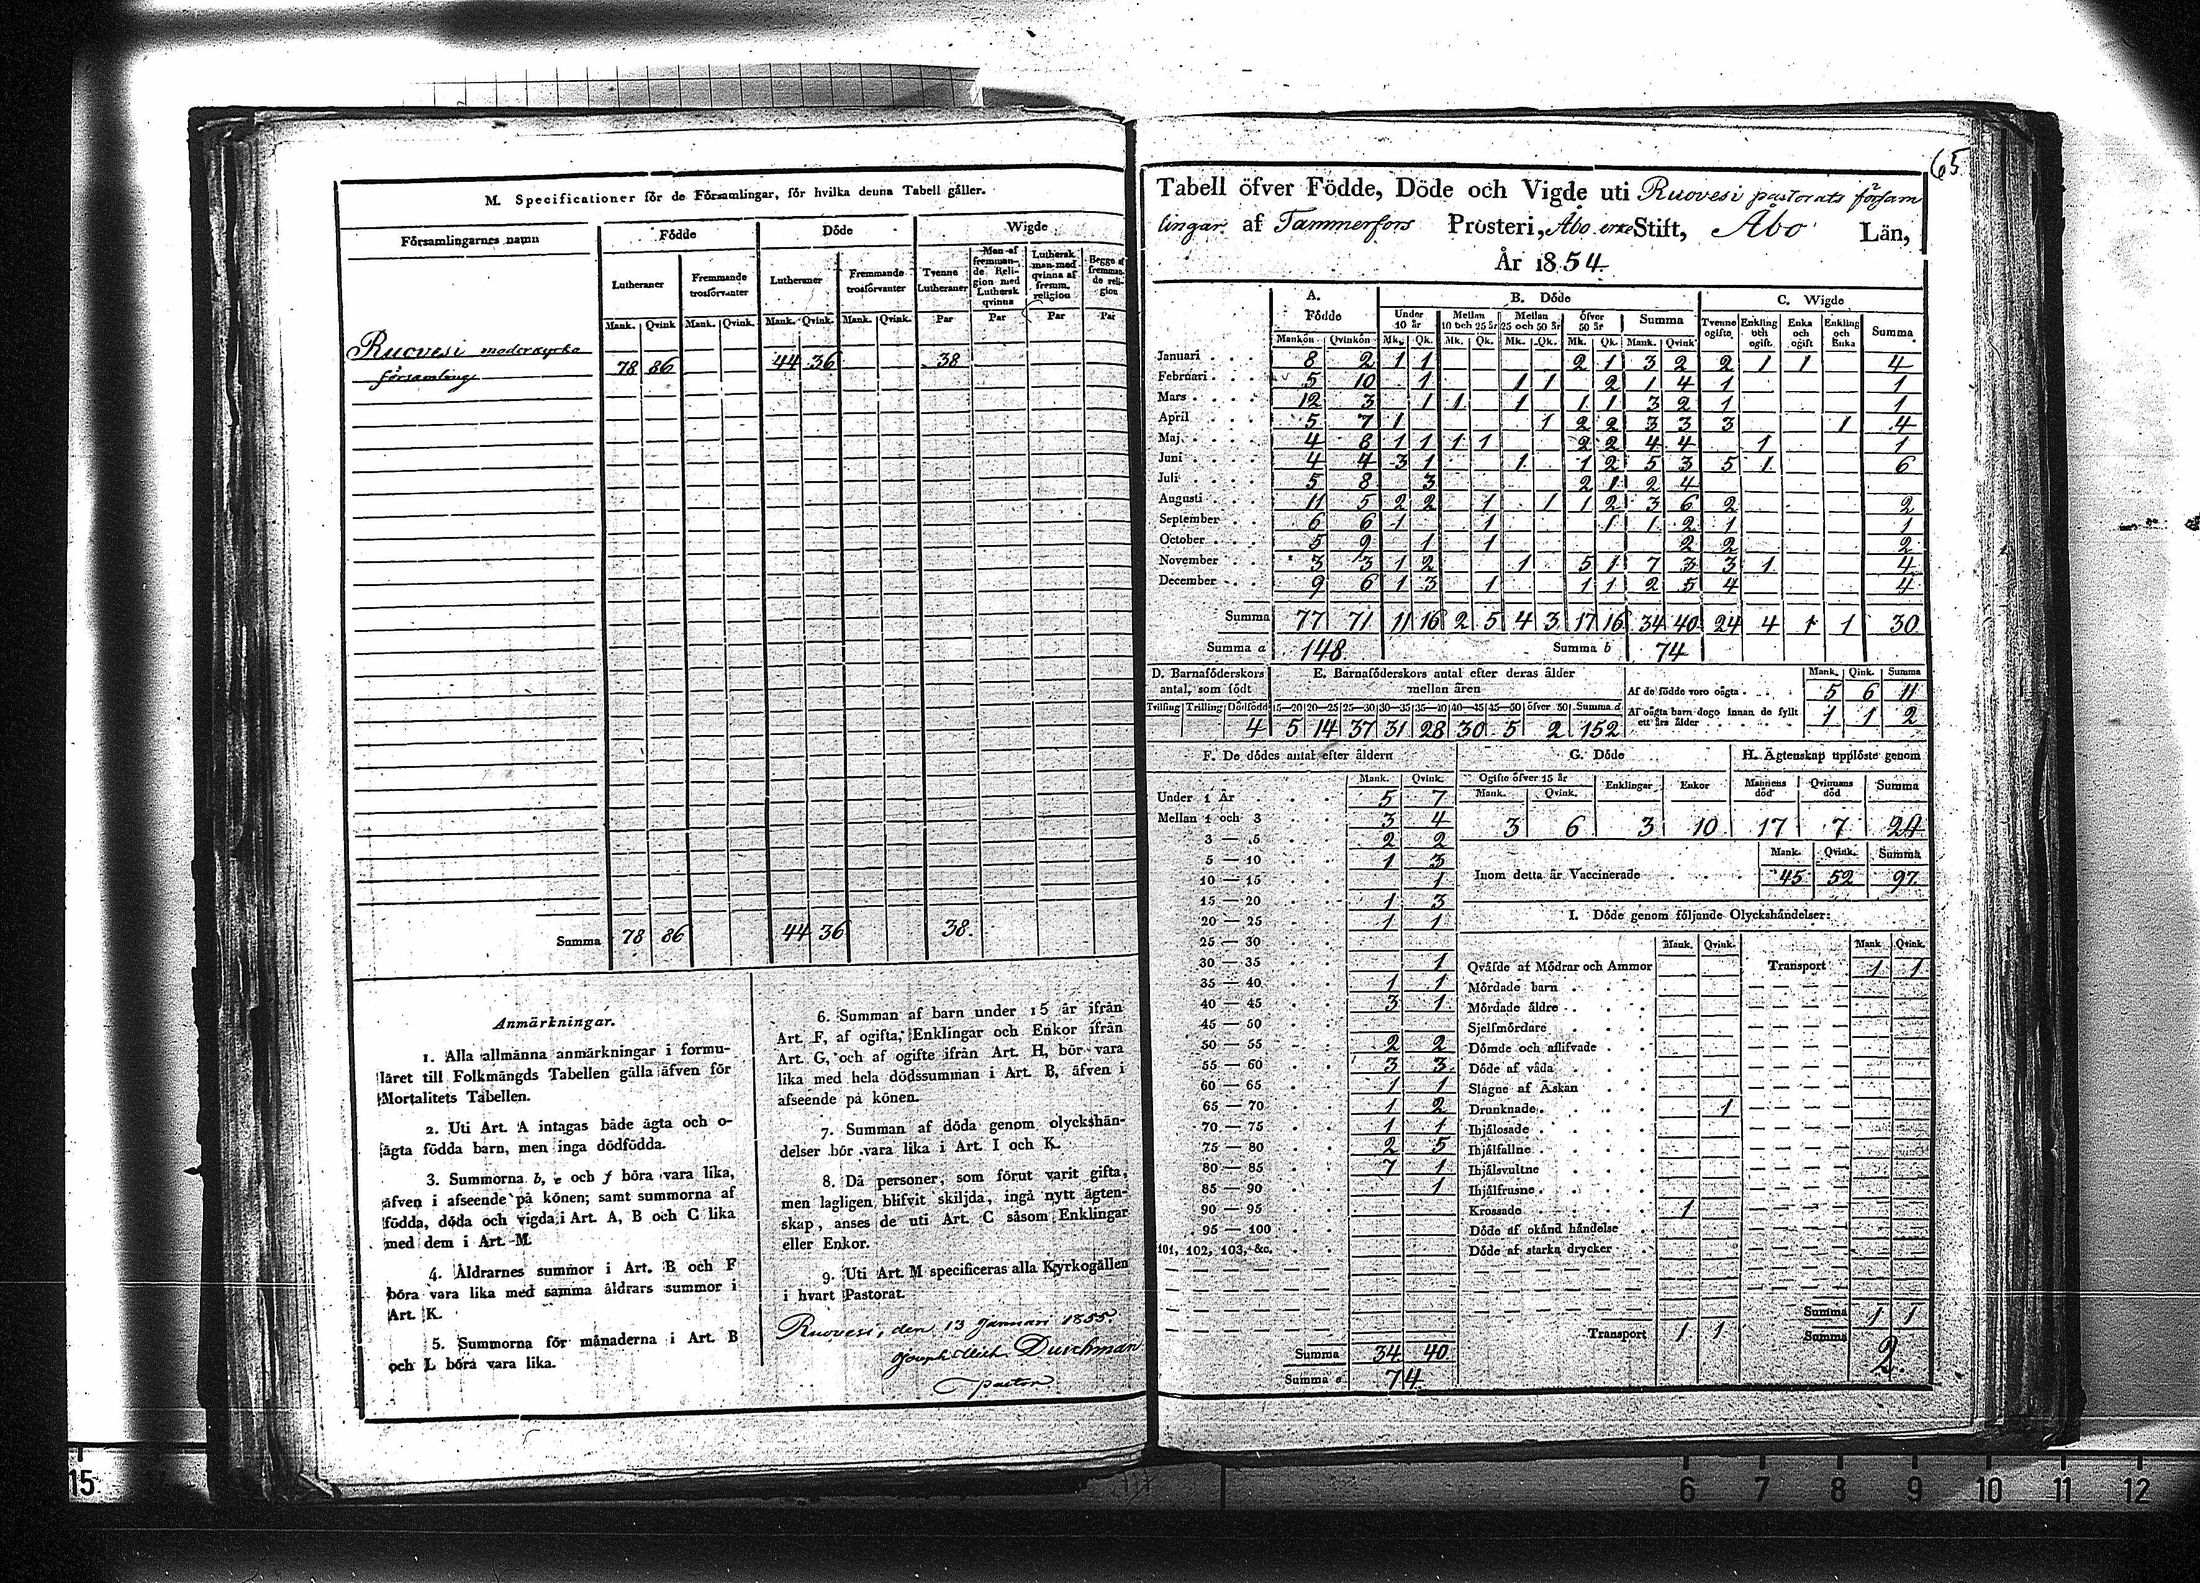 M. Specificationer för de Församlingar, för hvilka denna Tabell gäller.
Församlingarnes namn
Födde
Döde
Wigde
Lutheraner
Fremmande trosförvanter
Lutheraner
Fremmande trosförvanter
Tvenne Lutheraner
Man af fremmande Religion med Luthersk qvinna
Luthersk man med qvinna af fremm. religion
Begge af fremmande religion
Mank. Qvink. Mank. Qvink. Mank. Qvink. Mank. Qvink. Par Par Par Par
Ruovesi moderkyrko
församling 78 86 44 36 38
Summa 78 86 44 36 38
Anmärkningar.
1. Alla allmänna anmärkningar i formu-
läret till Folkmängds Tabellen gälla äfven för
Mortalitets Tabellen.
2. Uti Art. A intagas både ägta och o-
ägta födda barn, men inga dödfödda.
3. Summorna b, e och f böra vara lika,
äfven i afseende på könen; samt summorna af
födda, döda och vigda i Art. A, B och C lika
med dem i Art. M.
4. Åldrarnes summor i Art. B och F
böra vara lika med samma åldrars summor i
Art. K.
5. Summorna för månaderna i Art. B
och L böra vara lika.
6. Summan af barn under 15 år ifrån
Art. F, af ogifta, Enklingar och Enkor ifrån
Art. G, och af ogifte ifrån Art. H, bör vara
lika med hela dödssumman i Art. B, äfven i
afseende på könen.
7. Summan af döda genom olyckshän-
delser bör vara lika i Art. I och K.
8. Då personer, som förut varit gifta,
men lagligen blifvit skiljda, ingå nytt ägten-
skap, anses de uti Art. C såsom Enklingar
eller Enkor.
9. Uti Art. M specificeras alla Kyrkogällen
i hvart Pastorat.
Ruovesi, den 13 Januari 1855.
Durchman
pastor
65
Tabell öfver Födde, Döde och Vigde uti Ruovesi pastorats försam
lingar af Tammerfors Prosteri, Åbo erke Stift, Åbo Län,
År 1854.
A. Födde
B. Döde
C. Wigde
Under 10 år
Mellan 10 och 25 år
Mellan 25 och 50 år
öfver 50 år
Summa
Tvenne ogifte
Enkling och ogift.
Enka och ogift.
Enkling och Enka
Summa
Mankön Qvinkön Mk. Qk. Mk. Qk. Mk. Qk. Mk. Qk. Mank. Qvink
Januari 8 2 1 1 2 1 3 2 2 1 1 4
Februari 5 10 1 1 1 2 1 4 1 1
Mars 12 3 1 1 1 1 1 3 2 1 1
April 5 7 1 1 2 2 3 3 3 1 4
Maj 4 8 1 1 1 1 2 2 4 4 1 1
Juni 4 4 3 1 1 1 2 5 3 5 1 6
Juli 5 8 3 2 1 2 4
Augusti 11 5 2 2 1 1 1 2 3 6 2 2
September 6 6 1 1 1 1 2 1 1
October 5 9 1 1 2 2 2
November 3 3 1 2 1 5 1 7 3 3 1 4
December 9 6 1 3 1 1 1 2 5 4 4
Summa 77 71 11 16 2 5 4 3 17 16 34 40 24 4 1 1 30
Summa a 148 Summa b 74
D. Barnaföderskors antal, som födt
E. Barnaföderskors antal efter deras ålder mellan åren
Tvilling Trilling Dödfödd 15—20 20—25 25—30 30—35 35—40 40—45 45—50 öfver 50 Summa d
4 5 14 37 31 28 30 5 2 152
Mank. Qink. Summa
Af de födde voro oägta 5 6 11
Af oägta barn dogo innan de fyllt ett års ålder 1 1 2
F. De dödes antal efter åldern
Mank. Qvink.
Under 1 År 5 7
Mellan 1 och 3 3 4
3 — 5 2 2
5 — 10 1 3
10 — 15 1
15 — 20 1 3
20 — 25 1 1
25 — 30
30 — 35 1
35 — 40 1 1
40 — 45 3 1
45 — 50
50 — 55 2 2
55 — 60 3 3
60 — 65 1 1
65 — 70 1 2
70 — 75 1 1
75 — 80 2 5
80 — 85 7 1
85 — 90 1
90 — 95
95 — 100
101, 102, 103, &c.
Summa 34 40
Summa e 74
G. Döde
Ogifte öfver 15 år
Mank. Qvink. Enklingar Enkor
3 6 3 10
H. Ägtenskap upplöste genom
Mannens död Qvinnans död Summa
17 7 24
Mank. Qvink. Summa
Inom detta år Vaccinerade 45 52 97
I. Döde genom följande Olyckshändelser:
Mank. Qvink. Mank Qvink.
Qväfde af Mödrar och Ammor Transport 1 1
Mördade barn
Mördade äldre
Sjelfmördare
Dömde och aflifvade
Döde af våda
Slagne af Åskan
Drunknade 1
Ihjälosade
Ihjälfallne
Ihjälsvultne
Ihjälfrusne
Krossade 1
Döde af okänd händelse
Döde af starka drycker
Summa 1 1
Transport 1 1 Summa 2
15 6 7 8 9 10 11 12